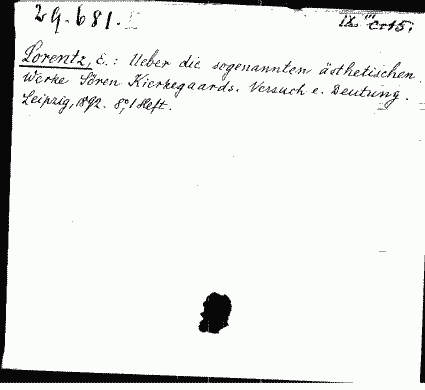 29.681.
IX. III C. 15.
Lorentz, E.: Ueber die sogenannten ästhetischen
Werke Sören Kierkegaards. Versuch e. Deutung.
Leipzig, 1892. 8°, 1 Heft.